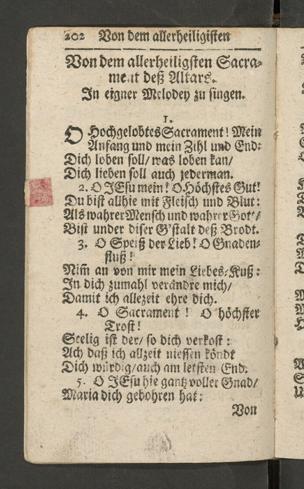 202 Von dem allerheiligisten
Von dem allerheiligsten Sacra-
ment deß Altars.
In eigner Melodey zu singen.
1.
O Hochgelobtes Sacrament! Mein
Anfang und mein Zihl und End:
Dich loben soll/ was loben kan/
Dich lieben soll auch jederman.
2. O JEsu mein! O Höchstes Gut!
Du bist allhie mit Fleisch und Blut:
Als wahrer Mensch und wahrer Got'/
Bist under diser G'stalt deß Brodt.
3. O Speiß der Lieb! O Gnaden-
fluß!
Nim̃ an von mir mein Liebes-Kuß:
In dich zumahl verändre mich/
Damit ich allezeit ehre dich.
4. O Sacrament! O höchster
Trost!
Seelig ist der/ so dich verkost:
Ach daß ich allzeit niessen köndt
Dich würdig/ auch am letsten End.
5. O JEsu hie gantz voller Gnad/
Maria dich gebohren hat:
Von